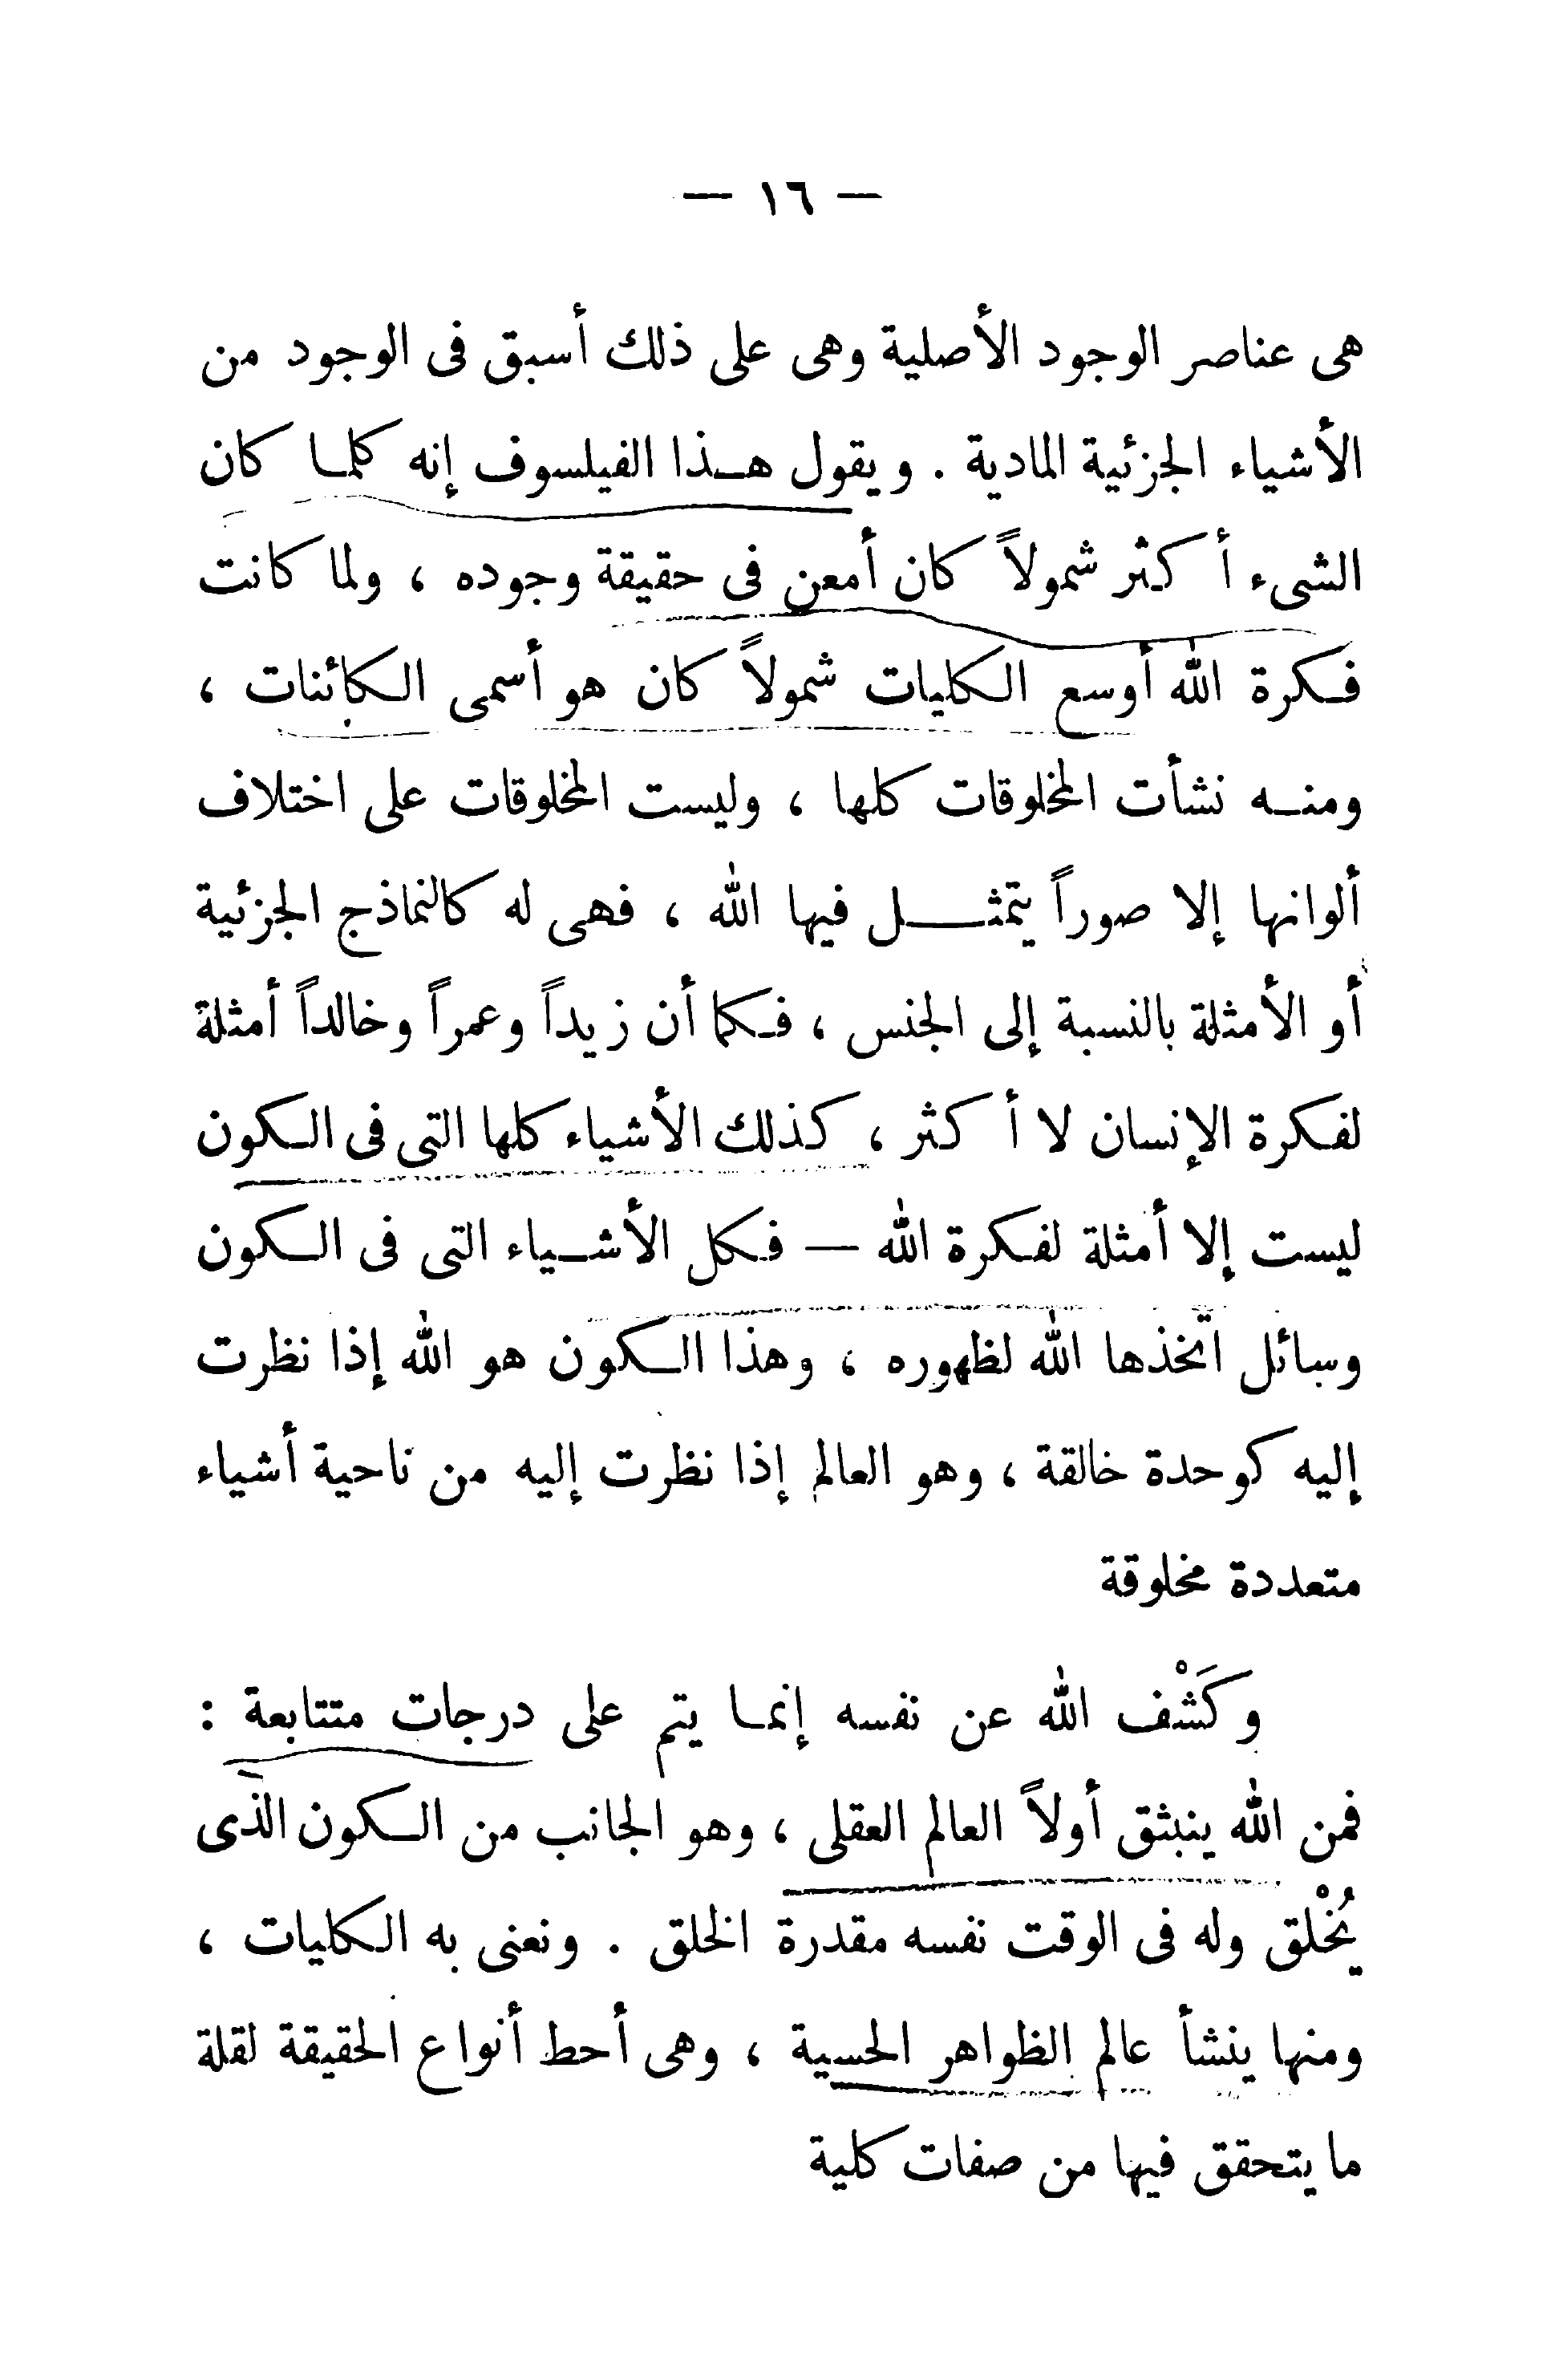 — ١٦ —
هى عناصر الوجود الأصلية وهى على ذلك أسبق فى الوجود من
الأشياء الجزئية المادية . ويقول هـذا الفيلسوف إنه كلمـا كان
الشىء أكثر شمولاً كان أمعن فى حقيقة وجوده ، ولما كانت
فكرة الله أوسع الكليات شمولاً كان هو أسمى الكائنات ،
ومنـه نشأت المخلوقات كلها ، وليست المخلوقات على اختلاف
ألوانها إلا صوراً يتمثـــل فيها الله ، فهى له كالنماذج الجزئية
أو الأمثلة بالنسبة إلى الجنس ، فكما أن زيداً وعمراً وخالداً أمثلة
لفكرة الإنسان لا أكثر ، كذلك الأشياء كلها التى فى الكون
ليست إلا أمثلة لفكرة الله — فكل الأشـياء التى فى الكون
وسائل اتّخذها الله لظهوره ، وهذا الكون هو الله إذا نظرت
إليه كوحدة خالقة ، وهو العالم إذا نظرت إليه من ناحية أشياء
متعددة مخلوقة
وكَشْف الله عن نفسه إنمـا يتم على درجات متتابعة :
فمن الله ينبثق أولاً العالم العقلى ، وهو الجانب من الكون الذى
يُخْلق وله فى الوقت نفسه مقدرة الخلق . ونعنى به الكليات ،
ومنها ينشأ عالم الظواهر الحسية ، وهى أحط أنواع الحقيقة لقلة
ما يتحقق فيها من صفات كلية